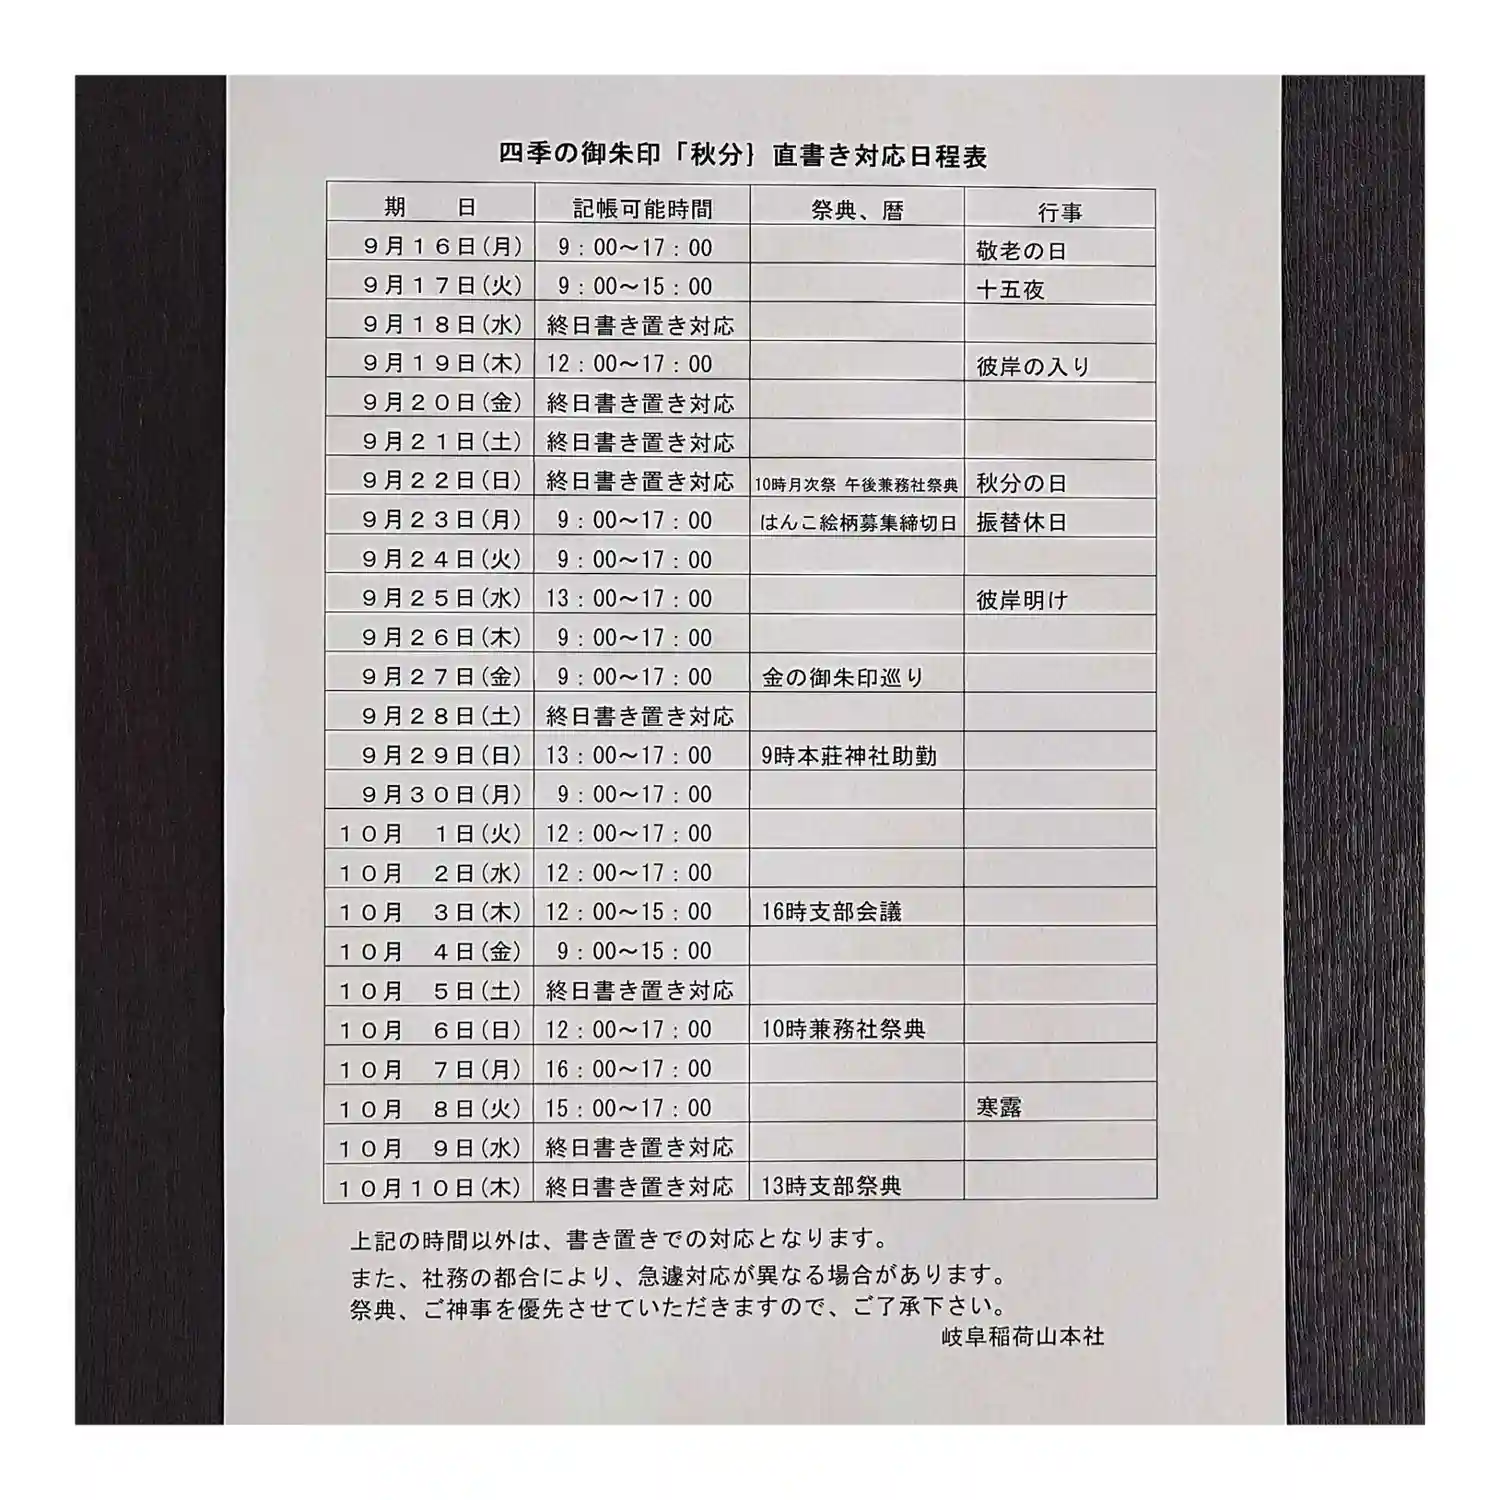 四季の御朱印「秋分｝直書き対応日程表
期　　日 記帳可能時間 祭典、暦 行事
９月１６日(月) 9：00～17：00 敬老の日
９月１７日(火) 9：00～15：00 十五夜
９月１８日(水) 終日書き置き対応
９月１９日(木) 12：00～17：00 彼岸の入り
９月２０日(金) 終日書き置き対応
９月２１日(土) 終日書き置き対応
９月２２日(日) 終日書き置き対応 10時月次祭 午後兼務社祭典 秋分の日
９月２３日(月) 9：00～17：00 はんこ絵柄募集締切日 振替休日
９月２４日(火) 9：00～17：00
９月２５日(水) 13：00～17：00 彼岸明け
９月２６日(木) 9：00～17：00
９月２７日(金) 9：00～17：00 金の御朱印巡り
９月２８日(土) 終日書き置き対応
９月２９日(日) 13：00～17：00 9時本荘神社助勤
９月３０日(月) 9：00～17：00
１０月　１日(火) 12：00～17：00
１０月　２日(水) 12：00～17：00
１０月　３日(木) 12：00～15：00 16時支部会議
１０月　４日(金) 9：00～15：00
１０月　５日(土) 終日書き置き対応
１０月　６日(日) 12：00～17：00 10時兼務社祭典
１０月　７日(月) 16：00～17：00
１０月　８日(火) 15：00～17：00 寒露
１０月　９日(水) 終日書き置き対応
１０月１０日(木) 終日書き置き対応 13時支部祭典
上記の時間以外は、書き置きでの対応となります。
また、社務の都合により、急遽対応が異なる場合があります。
祭典、ご神事を優先させていただきますので、ご了承下さい。
岐阜稲荷山本社